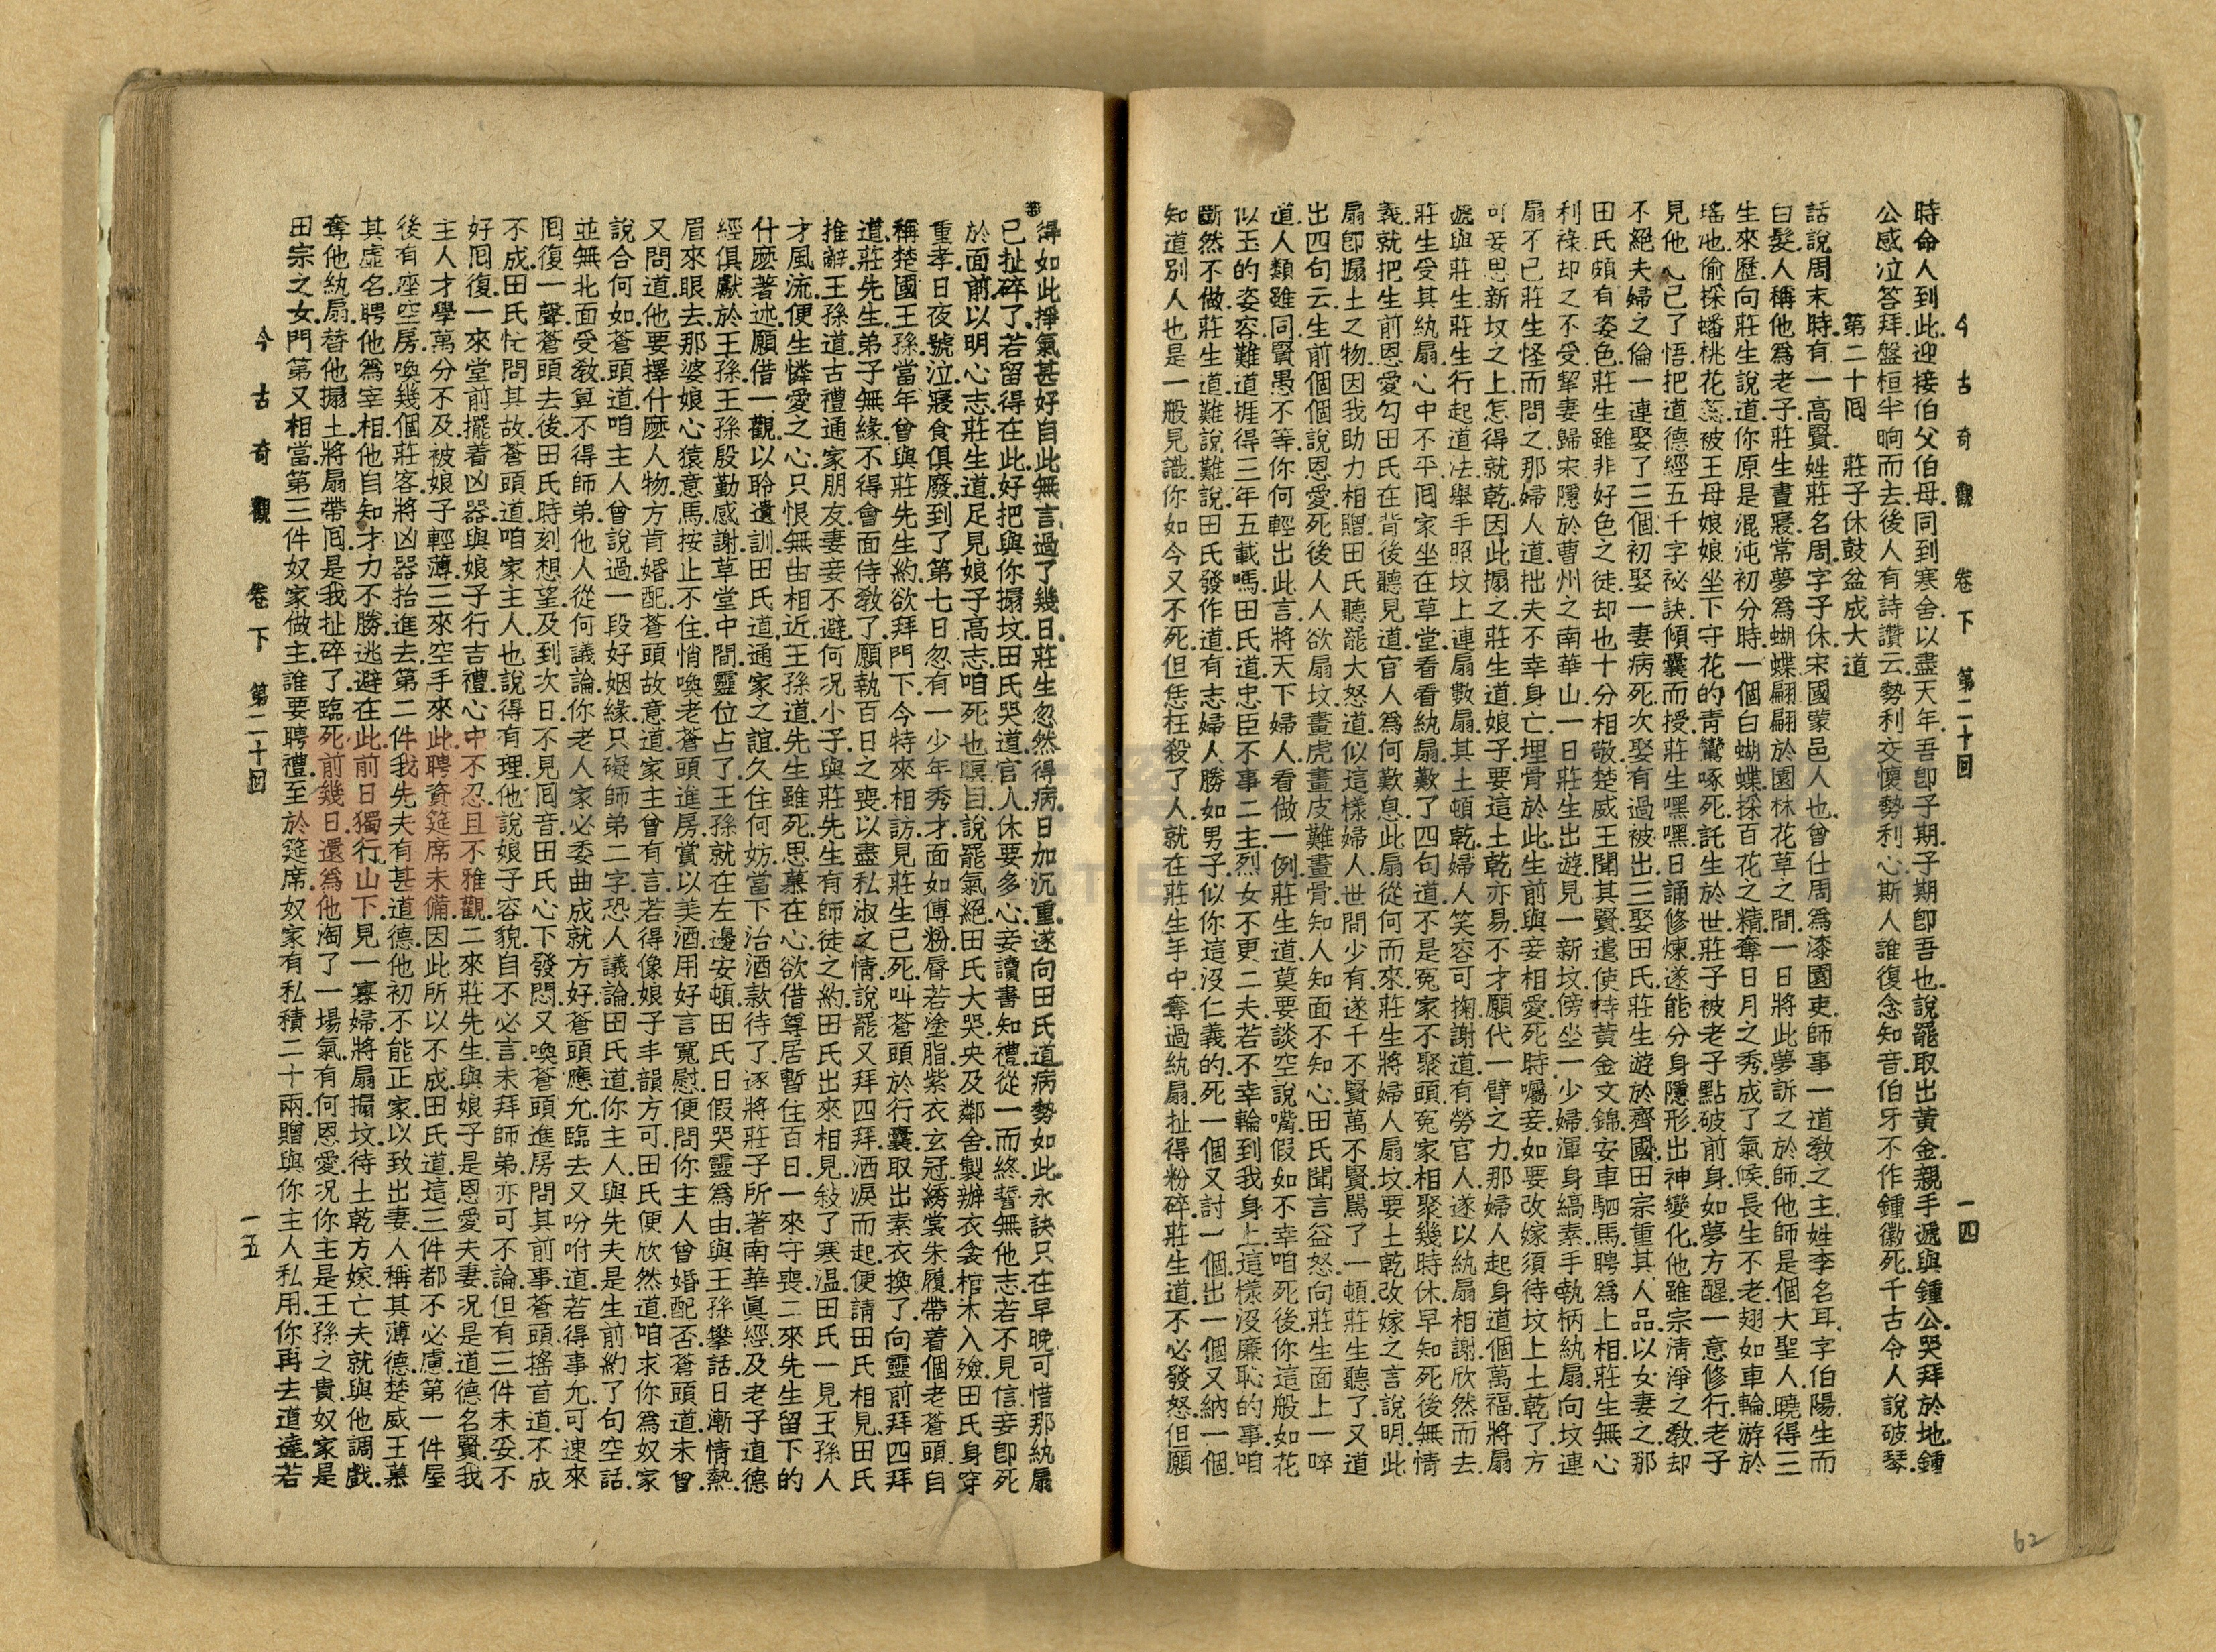 今古奇觀　卷下　第二十回　一四
時命人到此.迎接伯父伯母.同到寒舍.以盡天年.吾卽子期.子期卽吾也.說罷取出黃金.親手遞與鍾公.哭拜於地.鍾
公感泣答拜.盤桓半晌而去.後人有詩讚云.勢利交懷勢利心.斯人誰復念知音.伯牙不作鍾徽死.千古令人說破琴.
第二十囘　莊子休鼓盆成大道
話說周末時.有一高賢.姓莊名周.字子休.宋國蒙邑人也.曾仕周爲漆園吏.師事一道敎之主.姓李名耳.字伯陽.生而
白髮.人稱他爲老子.莊生晝寢.常夢爲蝴蝶.翩翩於園林花草之間.一日將此夢訴之於師.他師是個大聖人.曉得三
生來歷.向莊生說道.你原是混沌初分時.一個白蝴蝶.採百花之精.奪日月之秀.成了氣候.長生不老.翅如車輪.游於
瑤池.偷採蟠桃花蕊.被王母娘娘坐下守花的靑鸞啄死.託生於世.莊子被老子點破前身.如夢方醒.一意修行.老子
見他心已了悟.把道德經五千字祕訣傾囊而授.莊生嘿嘿日誦修煉.遂能分身隱形.出神變化.他雖宗淸淨之敎.却
不絕夫婦之倫.一連娶了三個.初娶一妻病死.次娶有過被出.三娶田氏.莊生遊於齊國.田宗重其人品.以女妻之.那
田氏頗有姿色.莊生雖非好色之徒.却也十分相敬.楚威王聞其賢.遣使持黃金文錦.安車駟馬.聘爲上相.莊生無心
利祿.却之不受.挈妻歸宋.隱於曹州之南華山.一日莊生出遊.見一新坟.傍坐一少婦.渾身縞素.手執柄紈扇.向坟連
扇不已.莊生怪而問之.那婦人道.拙夫不幸身亡.埋骨於此.生前與妾相愛.死時囑妾.如要改嫁.須待坟上土乾了方
可.妾思新坟之上.怎得就乾.因此搧之.莊生道.娘子要這土乾亦易.不才願代一臂之力.那婦人起身道個萬福.將扇
遞與莊生.莊生行起道法.舉手照坟上連扇數扇.其土頓乾.婦人笑容可掬.謝道.有勞官人.遂以紈扇相謝.欣然而去.
莊生受其紈扇.心中不平.囘家坐在草堂.看看紈扇.歎了四句道.不是冤家不聚頭.冤家相聚幾時休.早知死後無情
義.就把生前恩愛勾.田氏在背後聽見道.官人爲何歎息.此扇從何而來.莊生將婦人扇坟.要土乾改嫁之言說明.此
扇卽搧土之物.因我助力相贈.田氏聽罷大怒道.似這樣婦人.世間少有.遂千不賢.萬不賢.罵了一頓.莊生聽了.又道
出四句云.生前個個說恩愛.死後人人欲扇坟.畫虎畫皮難畫骨.知人知面不知心.田氏聞言益怒.向莊生面上一啐
道.人類雖同.賢愚不等.你何輕出此言.將天下婦人看做一例.莊生道.莫要談空說嘴.假如不幸.咱死後.你這般如花
似玉的姿容.難道捱得三年五載嗎.田氏道.忠臣不事二主.烈女不更二夫.若不幸輪到我身上.這樣沒廉恥的事.咱
斷然不做.莊生道.難說難說.田氏發作道.有志婦人.勝如男子.似你這沒仁義的.死一個又討一個.出一個又納一個.
知道別人也是一般見識.你如今又不死.但恁枉殺了人.就在莊生手中奪過紈扇.扯得粉碎.莊生道.不必發怒.但願
得如此掙氣甚好.自此無言.過了幾日.莊生忽然得病.日加沉重.遂向田氏道.病勢如此.永訣只在早晚.可惜那紈扇
已扯碎了.若留得在此.好把與你搧坟.田氏哭道.官人休要多心.妾讀書知禮.從一而終.誓無他志.若不見信.妾卽死
於面前.以明心志.莊生道.足見娘子高志.咱死也瞑目.說罷氣絕.田氏大哭.央及鄰舍.製辦衣衾棺木入殮.田氏身穿
重孝.日夜號泣.寢食俱廢.到了第七日.忽有一少年秀才.面如傅粉.脣若塗脂.紫衣玄冠.綉裳朱履.帶着個老蒼頭.自
稱楚國王孫.當年曾與莊先生約.欲拜門下.今特來相訪.見莊生已死.叫蒼頭於行囊取出素衣換了.向靈前拜四拜
道.莊先生.弟子無緣.不得會面侍敎了.願執百日之喪.以盡私淑之情.說罷又拜四拜.洒淚而起.便請田氏相見.田氏
推辭.王孫道.古禮通家朋友.妻妾不避.何況小子與莊先生有師徒之約.田氏出來相見.敍了寒温.田氏一見王孫人
才風流.便生憐愛之心.只恨無由相近.王孫道.先生雖死.思慕在心.欲借尊居暫住百日.一來守喪.二來先生留下的
什麽著述.願借一觀.以聆遺訓.田氏道.通家之誼.久住何妨.當下治酒款待了.逐將莊子所著南華眞經.及老子道德
經.俱獻於王孫.王孫殷勤感謝.草堂中間.靈位占了.王孫就在左邊安頓.田氏日假哭靈爲由.與王孫攀話.日漸情熱.
眉來眼去.那婆娘心猿意馬.按止不住.悄喚老蒼頭進房.賞以美酒.用好言寬慰.便問你主人曾婚配否.蒼頭道.未曾.
又問道.他要擇什麽人物.方肯婚配.蒼頭故意道.家主曾有言.若得像娘子丰韻方可.田氏便欣然道.咱求你爲奴家
說合何如.蒼頭道.咱主人曾說過.一段好姻緣.只礙師弟二字.恐人議論.田氏道.你主人與先夫.是生前約了句空話.
並無北面受敎.算不得師弟.他人從何議論.你老人家必委曲成就方好.蒼頭應允.臨去又吩咐道.若得事允.可速來
囘復一聲.蒼頭去後.田氏時刻想望.及到次日.不見囘音.田氏心下發悶.又喚蒼頭進房.問其前事.蒼頭搖首道.不成
不成.田氏忙問其故.蒼頭道.咱家主人也說得有理.他說娘子容貌.自不必言.未拜師弟.亦可不論.但有三件未妥.不
好囘復.一來堂前擺着凶器.與娘子行吉禮.心中不忍.且不雅觀.二來莊先生與娘子.是恩愛夫妻.況是道德名賢.我
主人才學.萬分不及.被娘子輕薄.三來空手來此.聘資筵席未備.因此所以不成.田氏道.這三件都不必慮.第一件屋
後有座空房.喚幾個莊客.將凶器抬進去.第二件我先夫有甚道德.他初不能正家.以致出妻.人稱其薄德.楚威王慕
其虛名.聘他爲宰相.他自知才力不勝.逃避在此.前日獨行山下.見一寡婦.將扇搧坟.待土乾方嫁.亡夫就與他調戲.
奪他紈扇.替他搧土.將扇帶囘.是我扯碎了.臨死前幾日.還爲他淘了一場氣.有何恩愛.況你主是王孫之貴.奴家是
田宗之女.門第又相當.第三件奴家做主.誰要聘禮.至於筵席.奴家有私積二十兩.贈與你主人私用.你再去道達.若
今古奇觀　卷下　第二十回　一五
62